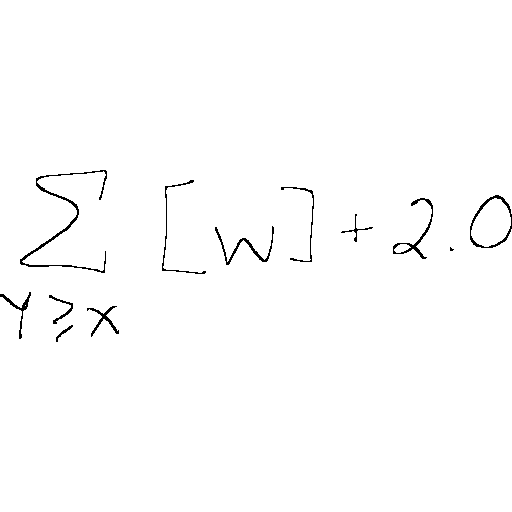 \sum_{Y \geqslant X} [W] + 2.0